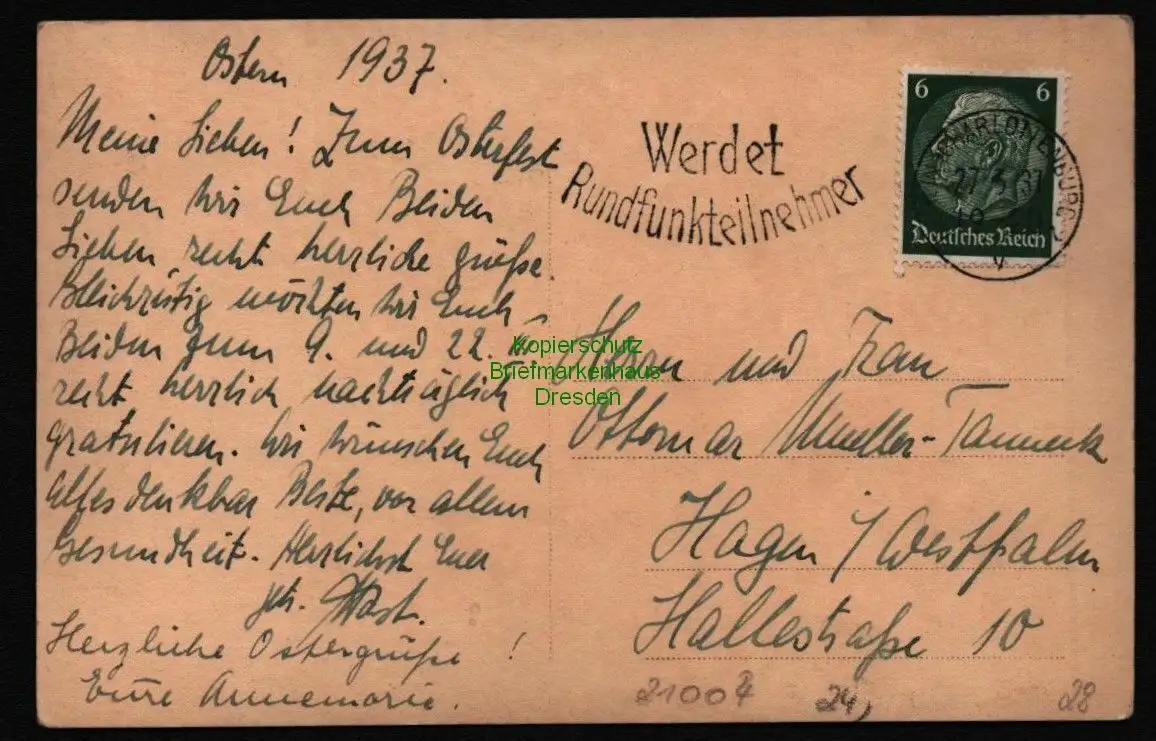 Ostern 1937.
Meine Lieben! Zum Osterfest
senden wir Euch Beiden
Lieben recht herzliche Grüße.
Gleichzeitig möchten wir Euch
Beiden zum 9. und 22. III
recht herzlich nachträglich
gratulieren. Wir wünschen Euch
Alles denkbar Beste, vor allem
Gesundheit. Herzlichst Euer
Herzliche Ostergrüße!
Eure Annemarie.
Werdet
Rundfunkteilnehmer
6 6
Deutsches Reich
CHARLOTTENBURG 2
27.3.37
V
Kopierschutz
Briefmarkenhaus
Dresden
Herrn und Frau
Ottomar Mueller-Tanneck
Hagen i/Westfalen
Hallestraße 10
21007 24, 28